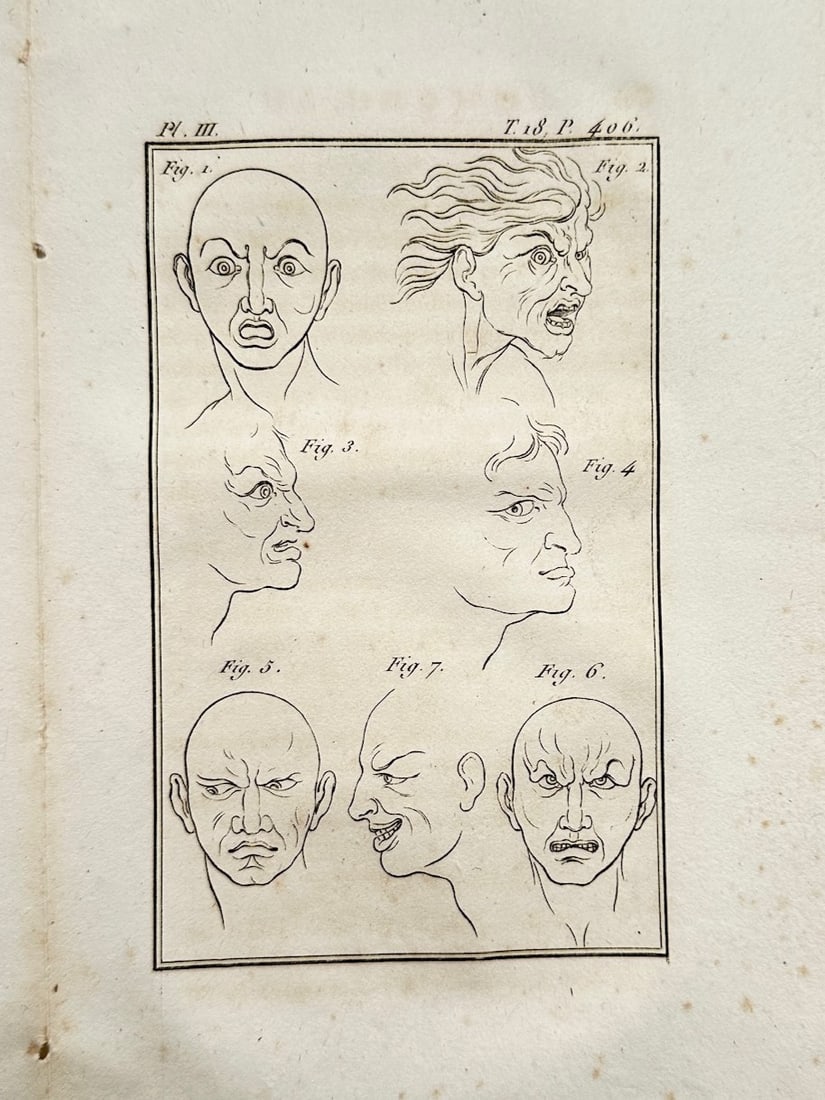 Pl. III.
T. 18, P. 406.
Fig. 1.
Fig. 2.
Fig. 3.
Fig. 4
Fig. 5.
Fig. 7.
Fig. 6.